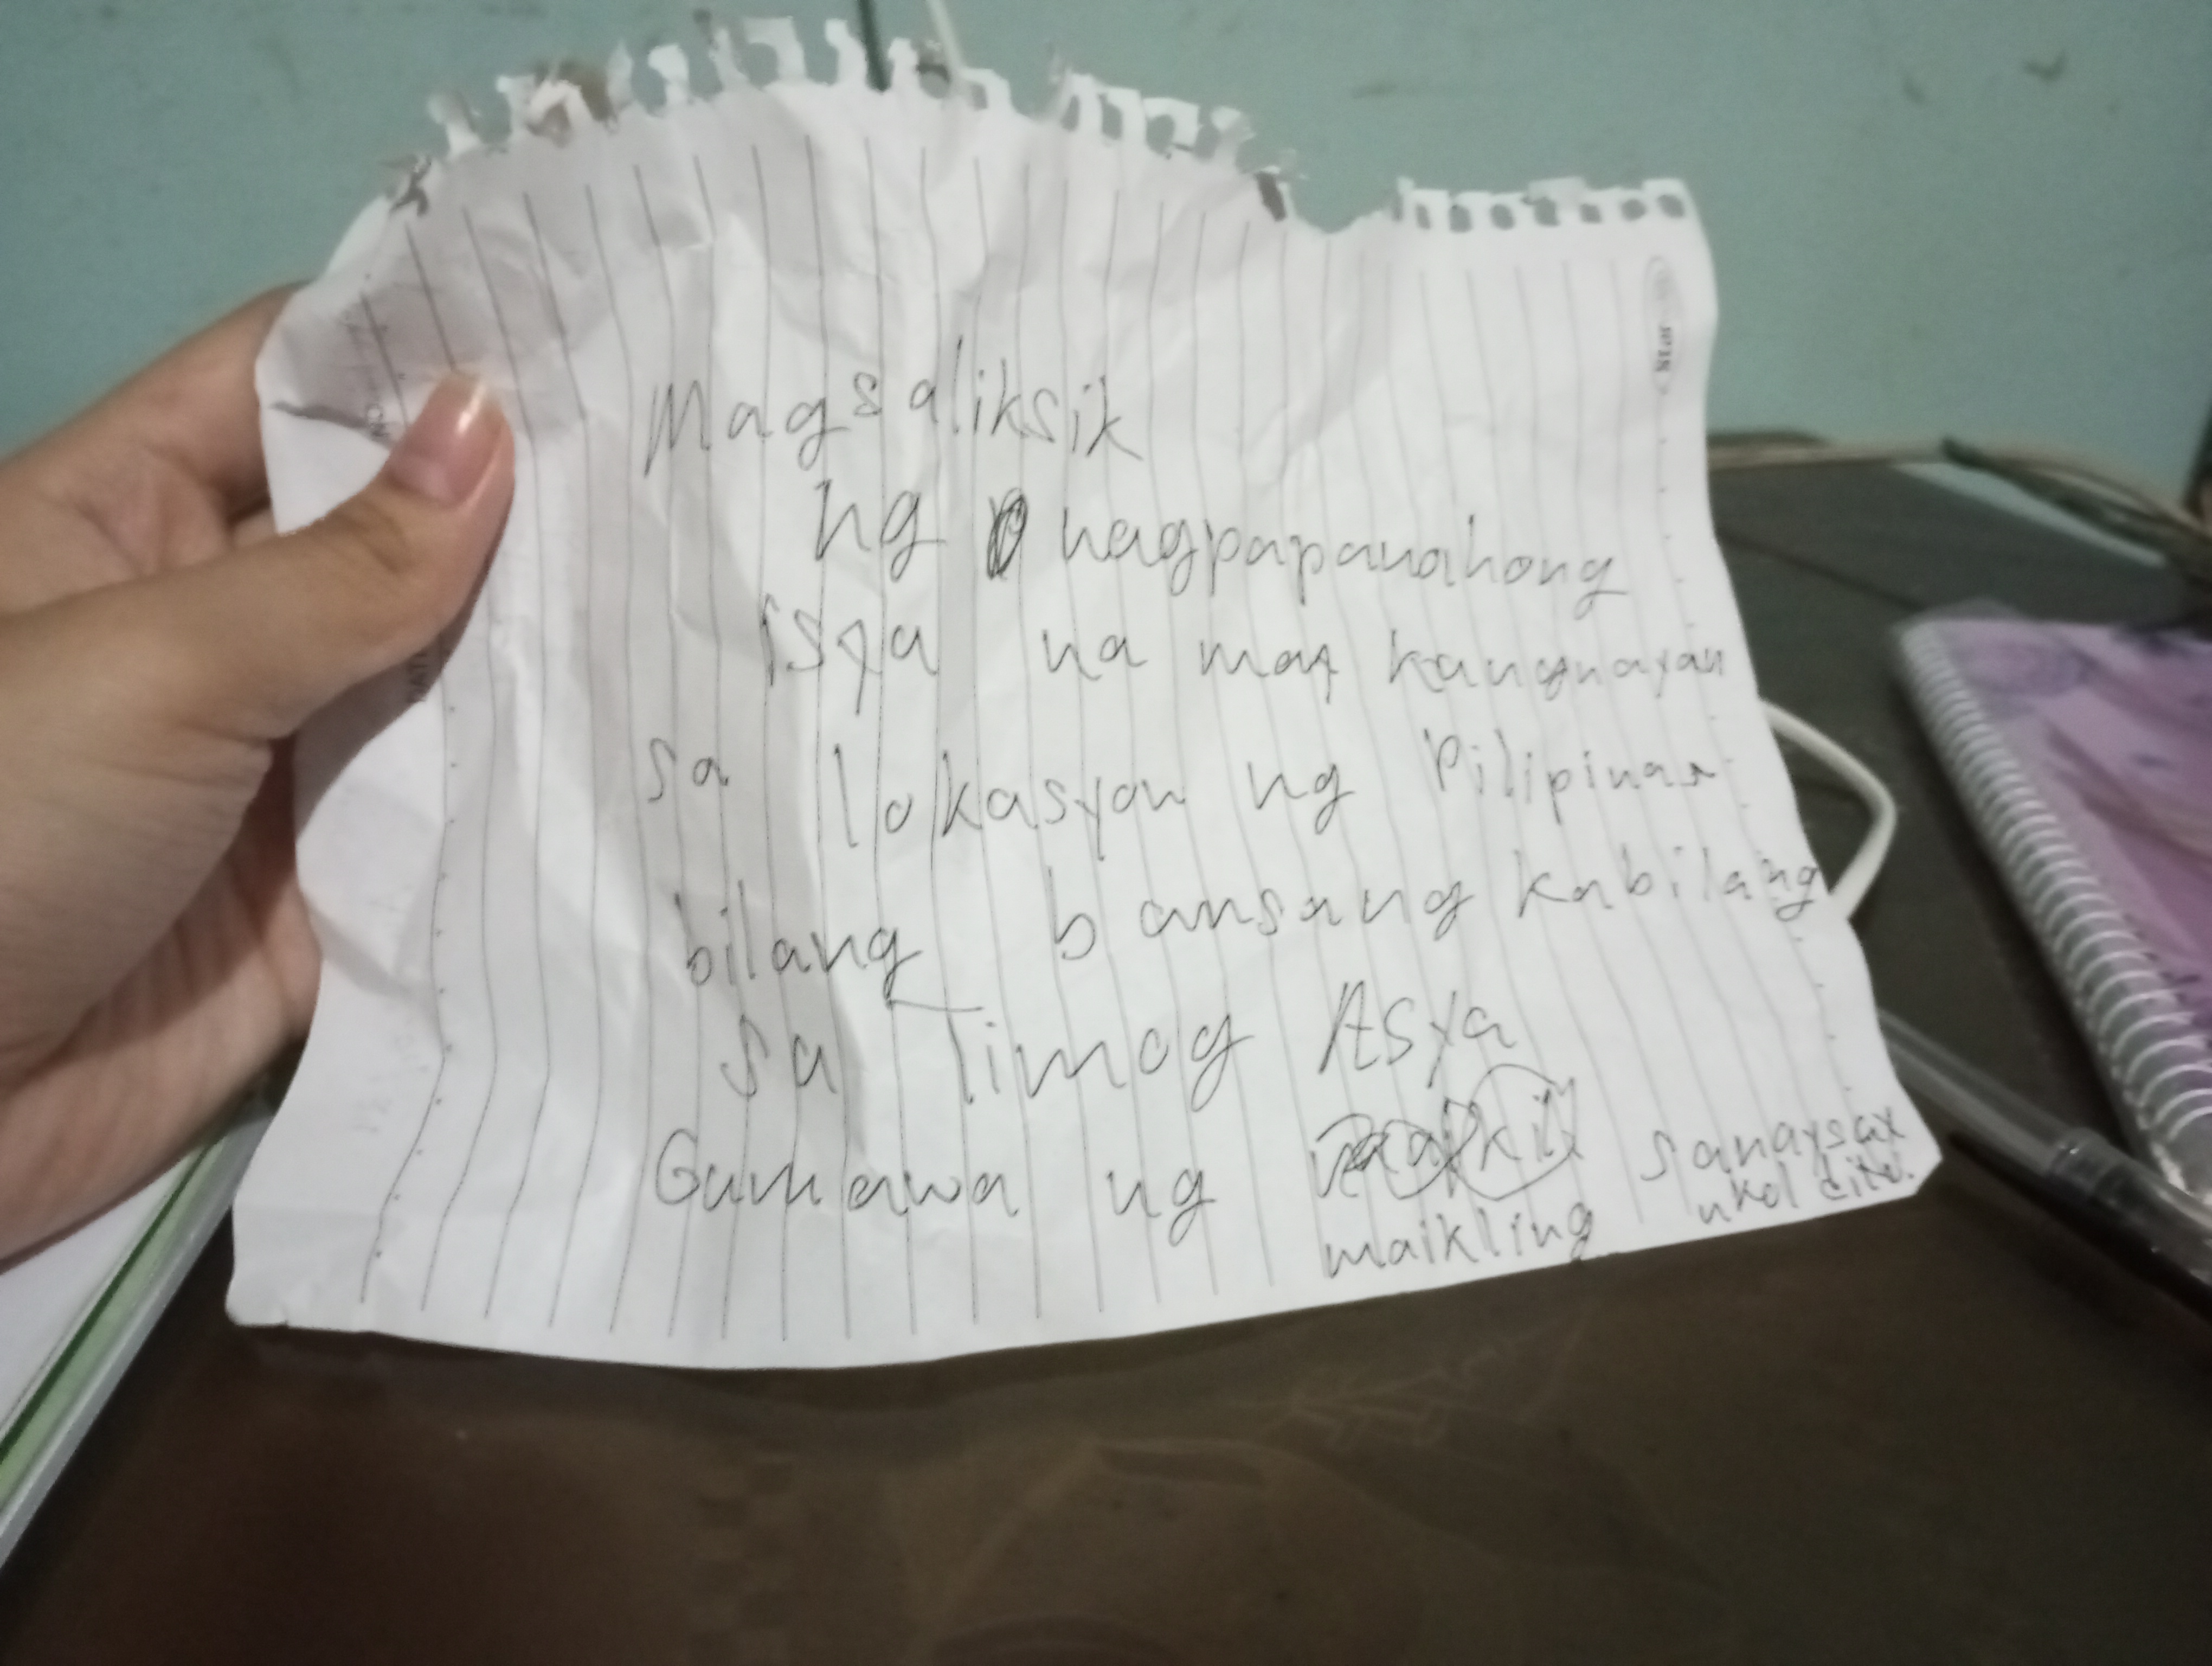 Magsaliksik
ng nagpapanahong
isya na may kaugnayan
sa lokasyon ng Pilipinas
bilang bansang kabilang
sa timog Asya
Gumawa ng sanaysay
maikling ukol dito.